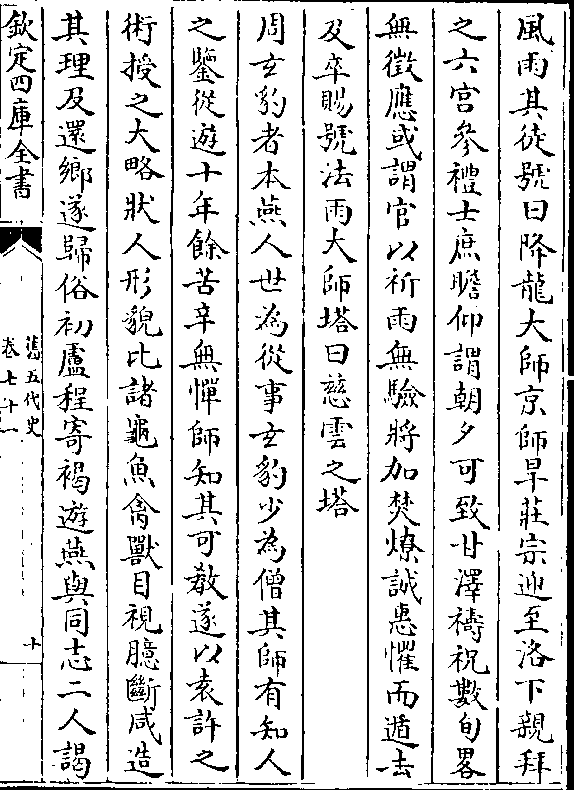 風雨其徒號曰降龍大師京師旱莊宗迎至洛下親拜
之六宮參禮士庶瞻仰謂朝夕可致甘澤禱祝數旬畧
無徵應或謂官以祈雨無驗將加焚燎誠惠懼而遁去
及卒賜號法雨大師塔曰慈雲之塔
周玄豹者本燕人世為從事玄豹少為僧其師有知人
之鑒從遊十年餘苦辛無憚師知其可教遂以袁許之
術授之大略狀人形貌比諸龜魚禽獸目視臆斷咸造
其理及還鄉遂歸俗初盧程寄褐遊燕與同志二人謁
欽定四庫全書
舊五代史
卷七十一
十